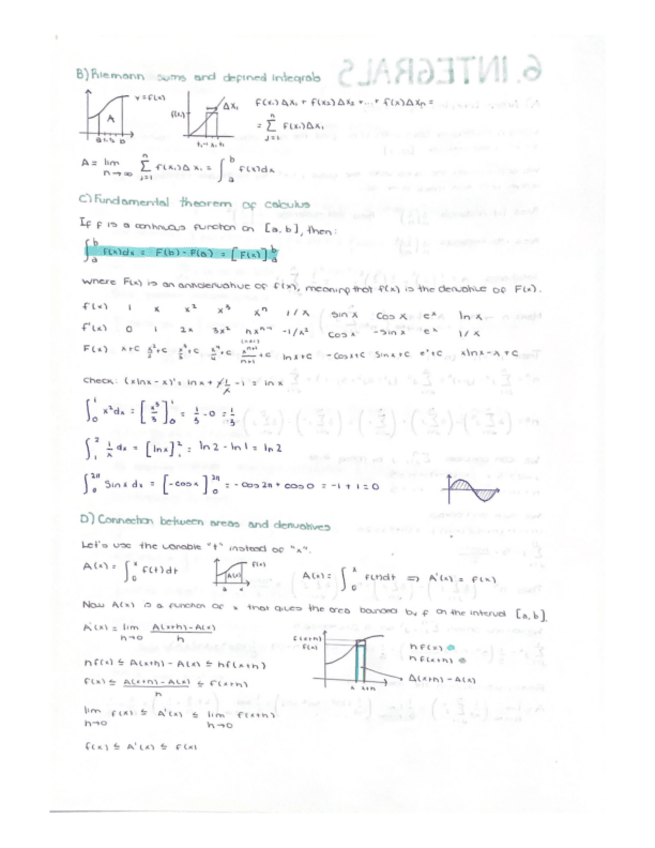 B) Riemann sums and defined integrals
y=f(x)
A
f(xi) Δxi
f(x₁)Δx₁ + f(x₂)Δx₂ + ... + f(xₙ)Δxₙ =
= Σ f(xᵢ)Δxᵢ
A = lim n→∞ Σ f(xᵢ)Δxᵢ = ∫ₐᵇ f(x)dx
C) Fundamental theorem of calculus
If f is a continuous function on [a,b], then:
∫ₐᵇ f(x)dx = F(b) - F(a) = [F(x)]ₐᵇ
where F(x) is an antiderivative of f(x), meaning that f(x) is the derivative of F(x).
f(x) 1 x x² x³ xⁿ 1/x sin x cos x eˣ ln x
f'(x) 0 1 2x 3x² nxⁿ⁻¹ -1/x² cos x -sin x eˣ 1/x
F(x) x+C x²/2+C x³/3+C x⁴/4+C xⁿ⁺¹/n+1+C ln x+C -cos x+C sin x+C eˣ+C xln x-x+C
Check: (xlnx-x)' = ln x + x·1/x - 1 = ln x
∫₀¹ x²dx = [x³/3]₀¹ = 1/3 - 0 = 1/3
∫₁² 1/x dx = [ln x]₁² = ln 2 - ln 1 = ln 2
∫₀²π sin x dx = [-cos x]₀²π = -cos 2π + cos 0 = -1 + 1 = 0
D) Connection between areas and derivatives
Let's use the variable "t" instead of "x".
A(x) = ∫₀ˣ f(t)dt
A(x) f(x)
A(x) = ∫₀ˣ f(t)dt ⇒ A'(x) = f(x)
Now A(x) is a function of x that gives the area bounded by f on the interval [a,b].
A'(x) = lim h→0 A(x+h)-A(x)/h
f(x+h)
f(x)
x x+h
hf(x)
hf(x+h)
A(x+h) - A(x)
hf(x) ≤ A(x+h) - A(x) ≤ hf(x+h)
f(x) ≤ A(x+h) - A(x)/h ≤ f(x+h)
lim h→0 f(x) ≤ A'(x) ≤ lim h→0 f(x+h)
f(x) ≤ A'(x) ≤ f(x)